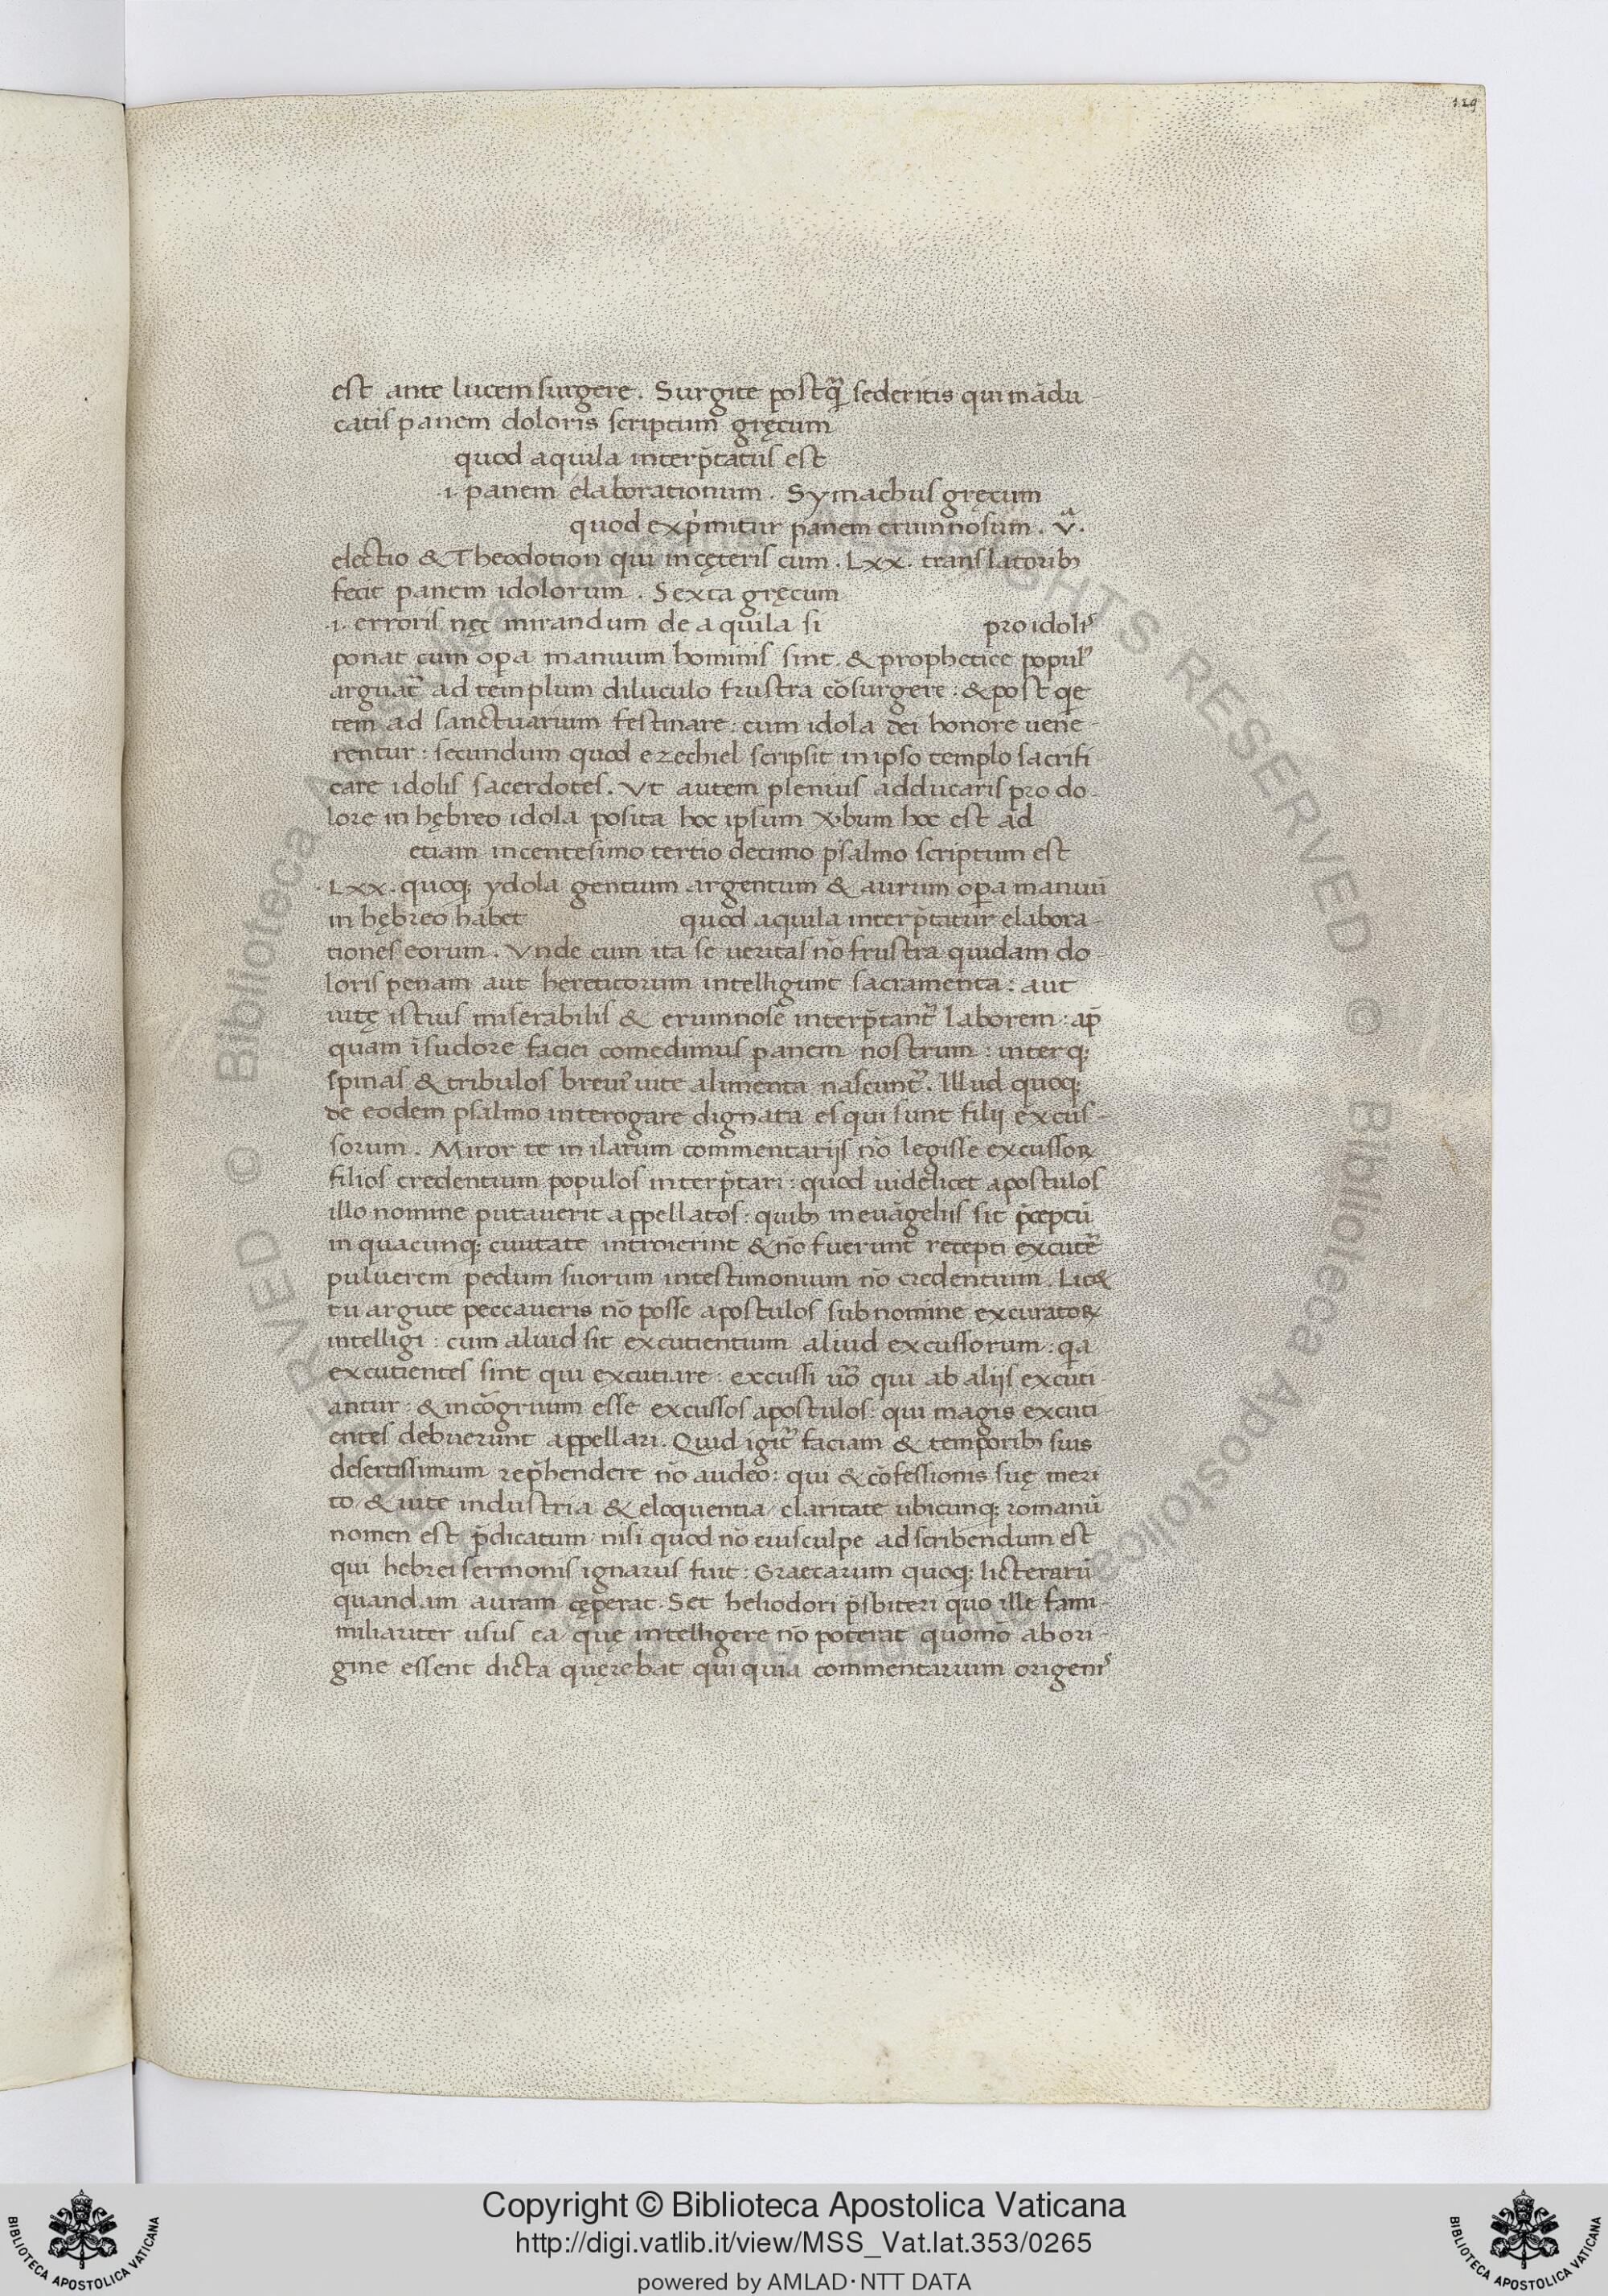 129
est ante lucem surgere. Surgite postq̃ sederitis qui mãdu-
catis panem doloris scriptum gręcum
quod aquila interp̃tatus est
·i· panem elaborationum. Symachus gręcum
quod exp̃mitur panem erumnosum. v̾.
electio & Theodotion qui in cęteris cum .Lxx. translatorib;
fecit panem idolorum. Sexta gręcum
·i· erroris nęc mirandum de aquila si pro idolis
ponat cum opera manuum hominis sint. & prophetice popul'
arguat̃ ad templum diluculo frustra cõsurgere: & post qie
tem ad sanctuarium festinare: cum idola dei honore uene-
rentur: secundum quod ezechiel scripsit in ipso templo sacrifi
care idolis sacerdotes. Vt autem plenius adducaris pro do-
lore in hębreo idola posita hoc ipsum ỽbum hoc est ad
etiam in centesimo tertio decimo psalmo scriptum est
.Lxx. quoq; ydola gentium argentum & aurum opera manuũ
in hębreo habet quod aquila interp̃tatur elabora-
tiones eorum. Vnde cum ita se ueritas nõ frustra quidam do-
loris penam aut hereticorum intelligunt sacramenta: aut
uitę istius miserabilis & erumnose interp̃tant̃ laborem: ap̃
quam ĩ sudore faciei comedimus panem nostrum: inter q;
spinas & tribulos breui' uite alimenta nascunt̃. Illud quoq;
de eodem psalmo interogare dignata es qui sunt filij excus-
sorum. Miror te in ilarum commentarijs nõ legisse excussoꝝ
filios credentium populos interp̃tari: quod uidelicet apostulos
illo nomine putauerit appellatos: quib; in euãgeliis sit p̃ceptũ
in quacunq; ciuitate introierint & nõ fuerunt recepti excutẽ
puluerem pedum suorum in testimonium nõ credentium. Lic&
tu argute peccaueris nõ posse apostulos sub nomine excuratoꝝ
intelligi: cum aliud sit excutientium aliud excussorum: qa
excutientes sint qui excutiare: excussi uõ qui ab aliis excuti
antur: & incõgruum esse excussos apostulos: qui magis excuti
entes debuerunt appellari. Quid igit̃ faciam & temporib; suis
desertissimum rep̃hendere nõ audeo: qui & cõfessionis suę meri
to / & uite industria & eloquentia / claritate ubicunq; romanũ
nomen est p̃dicatum / nisi quod nõ eius culpe adscribendum est
qui hebrei sermonis ignarus fuit: Graecarum quoq; licterarũ
quandam auram cęperat. Set heliodori p̃sbiteri quo ille fami-
miliariter usus ea quę intelligere nõ poterat quomõ ab ori-
gine essent dicta quęrebat qui quia commentarium origenis
Copyright © Biblioteca Apostolica Vaticana
http://digi.vatlib.it/view/MSS_Vat.lat.353/0265
powered by AMLAD·NTT DATA